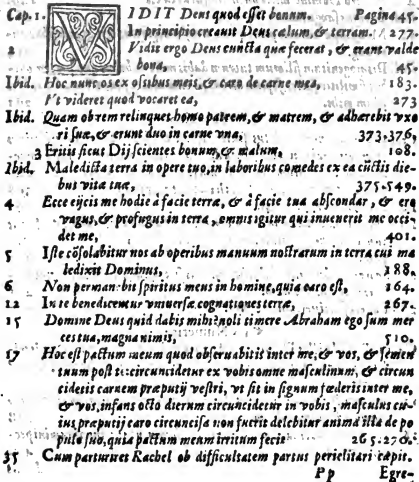 Cap. 1. VIDIT Deus quod esset bonum. Pagina 45.
In principio creauit Deus cælum, & terram. 277.
2 Vidit ergo Deus cuncta quæ fecerat, & erant valde
bona, 45.
Ibid. Hoc nunc os ex ossibus meis, & caro de carne mea, 183.
Vt videret quod vocaret ea, 273
Ibid. Quam obrem relinquet homo patrem, & matrem, & adhærebit vxo
ri suæ, & erunt duo in carne vna, 373.376.
3 Eritis sicut Dij scientes bonum, & malum, 108.
Ibid. Maledicta terra in opere tuo, in laboribus comedes ex ea cūctis die-
bus vitæ tuæ, 375.549.
4 Ecce eijcis me hodie à facie terræ, & à facie tua abscondar, & ero
vagus, & profugus in terra, omnis igitur qui inuenerit me occi-
det me, 401.
5 Iste cōsolabitur nos ab operibus manuum nostrarum in terra cui ma
ledixit Dominus, 188.
6 Non permanebit spiritus meus in homine, quia caro est, 164.
12 In te benedicentur vniuersæ cognationes terræ, 267.
15 Domine Deus quid dabis mihi? noli timere Abraham ego sum mer
ces tua, magna nimis, 510.
17 Hoc est pactum meum quod obseruabitis inter me, & vos, & semen
tuum post te: circuncidetur ex vobis omne masculinum, & circun
cidetis carnem præputij vestri, vt sit in signum fœderis inter me,
& vos, infans octo dierum circuncidetur in vobis, masculus cu-
ius præputij caro circuncisa non fuerit delebitur anima illa de po
pulo suo, quia pactum meum irritum fecit 265.270.
35 Cum parturiret Rachel ob difficultatem partus periclitari cæpit.
Pp Egre-